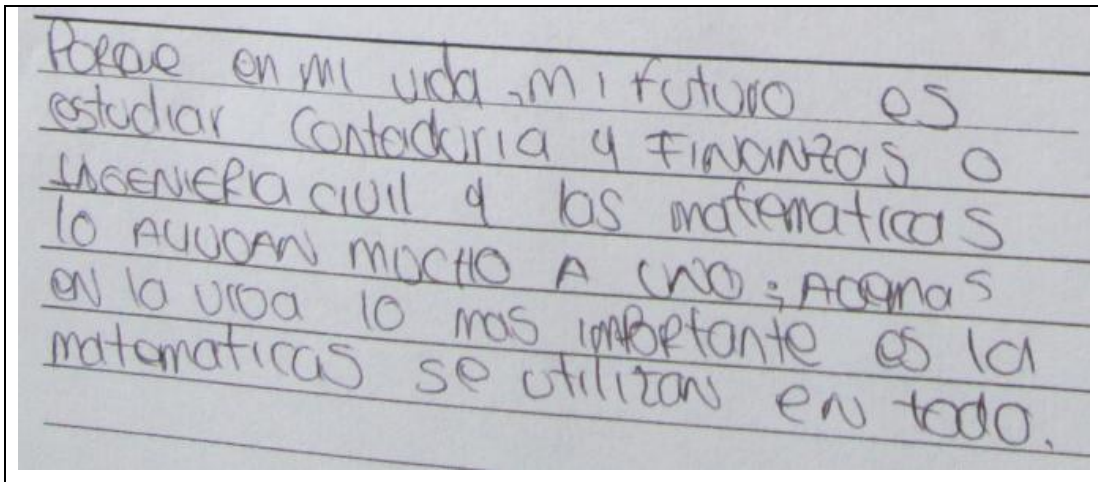 Porque en mi vida, mi futuro es
estudiar Contaduria y FINANzas o
INGENIERIA civil y las matematicas
lo AYUDAN MUCHO A UNO; Ademas
en la vida lo mas importante es la
matematicas se utilizan en todo.